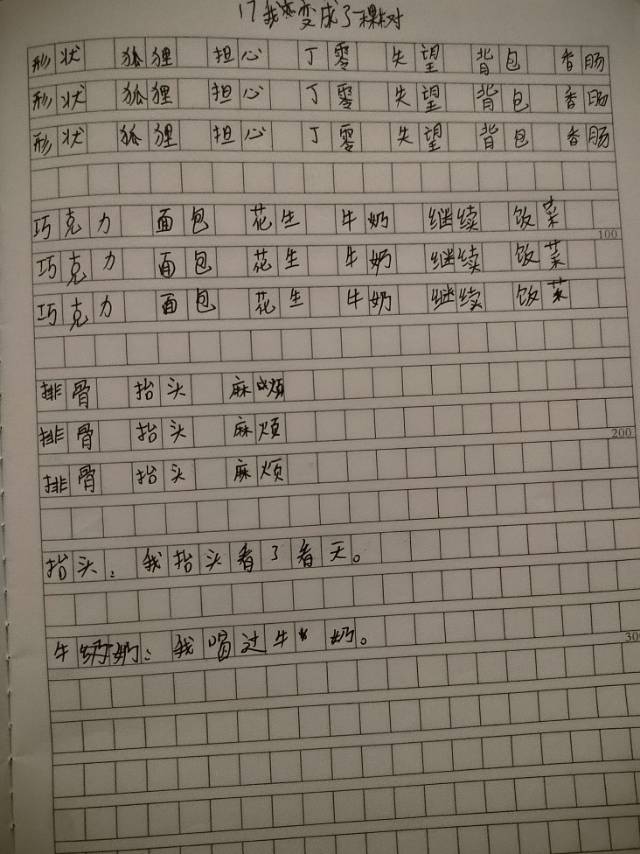 17我变成了一棵树
形状 狐狸 担心 丁零 失望 背包 香肠
形状 狐狸 担心 丁零 失望 背包 香肠
形状 狐狸 担心 丁零 失望 背包 香肠
巧克力 面包 花生 牛奶 继续 饭菜
100
巧克力 面包 花生 牛奶 继续 饭菜
巧克力 面包 花生 牛奶 继续 饭菜
排骨 抬头 麻烦
排骨 抬头 麻烦
200
排骨 抬头 麻烦
抬头：我抬头看了看天。
牛奶：我喝过牛奶。
300